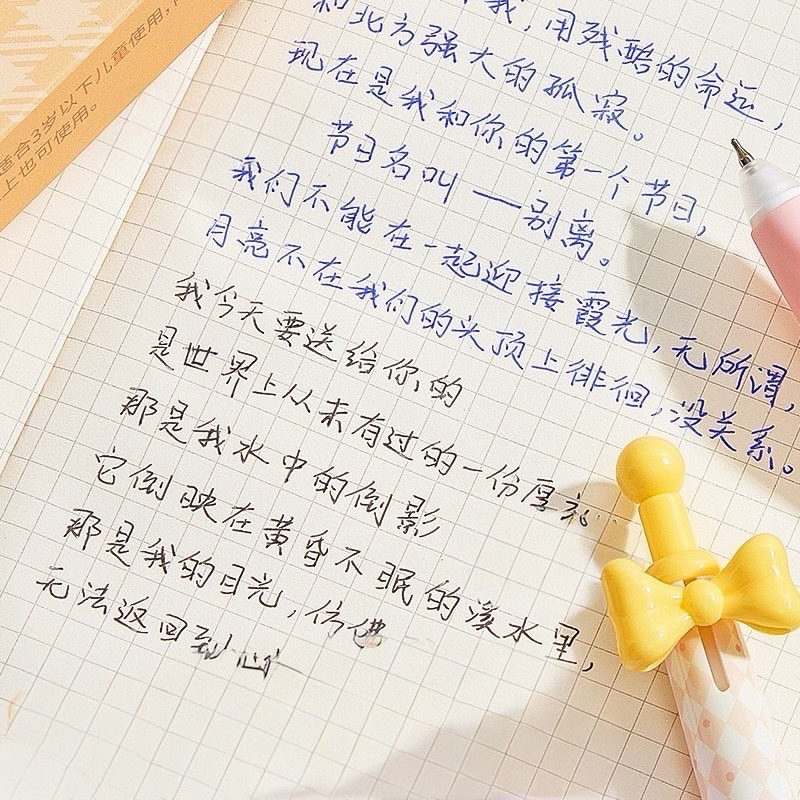 适合3岁以下儿童使用,
上也可使用。
我,用残酷的命运,
和北方强大的孤寂。
现在是我和你的第一个节日,
节日名叫——别离。
我们不能在一起迎接霞光,无所谓,
月亮不在我们的头顶上徘徊,没关系。
我今天要送给你的
是世界上从未有过的一份厚礼
那是我水中的倒影
它倒映在黄昏不眠的溪水里,
那是我的目光,仿佛
无法返回到